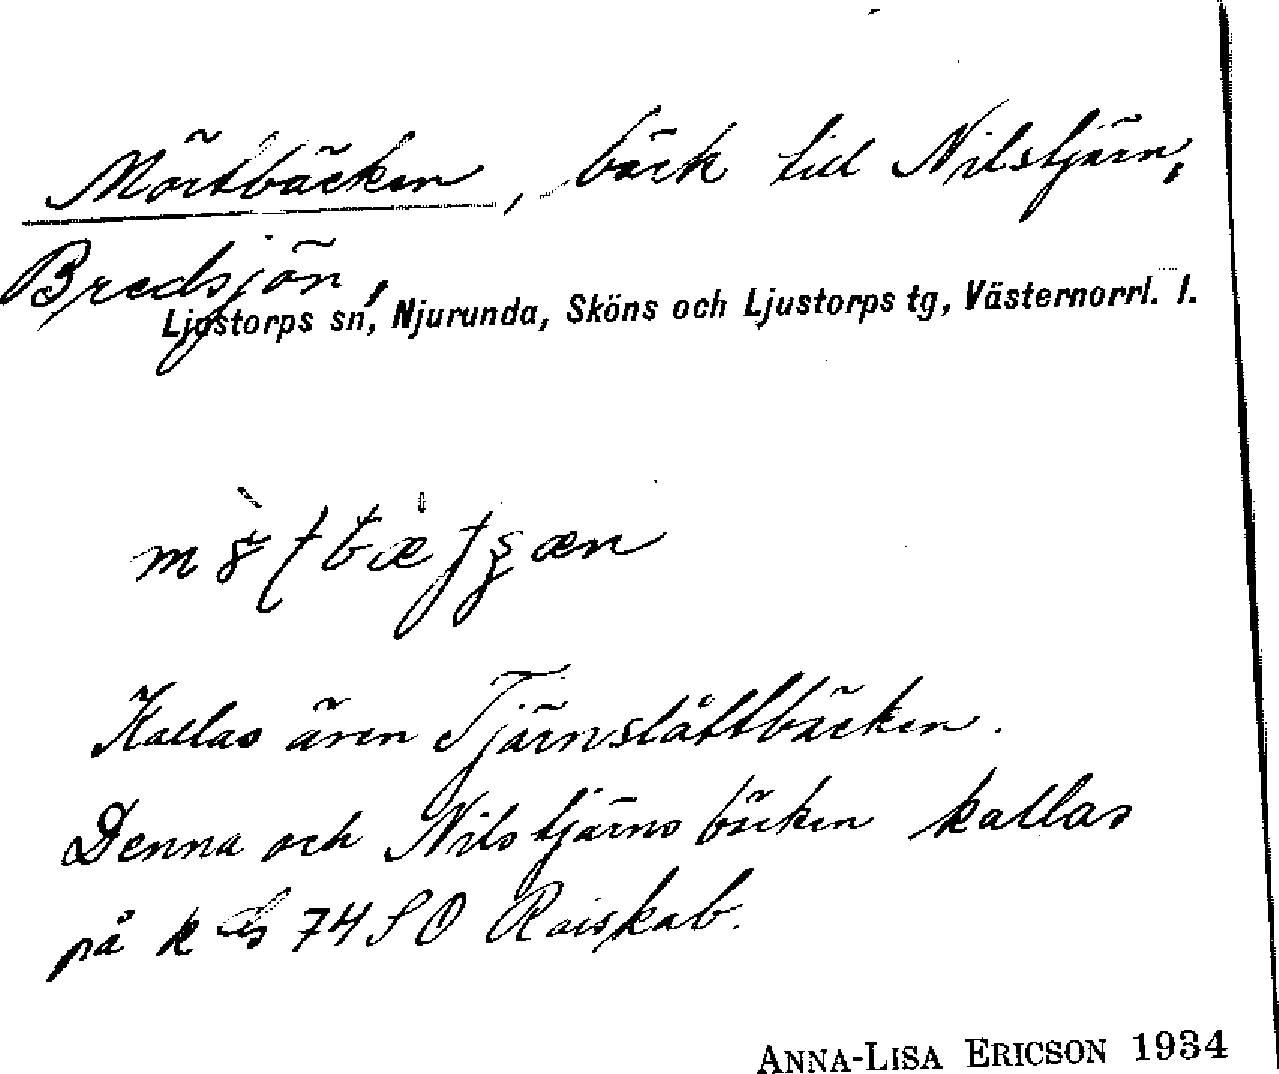 Mörtbäcken, bäck till Nilstjärn,
Bredsjön,
Ljustorps sn, Njurunda, Sköns och Ljustorps tg, Västernorrl. l.
Kallas även Tjärnslåttbäcken.
Denna och Nilstjärnsbäcken kallas
på k 74 SO Raiskab.
ANNA-LISA ERICSON 1934